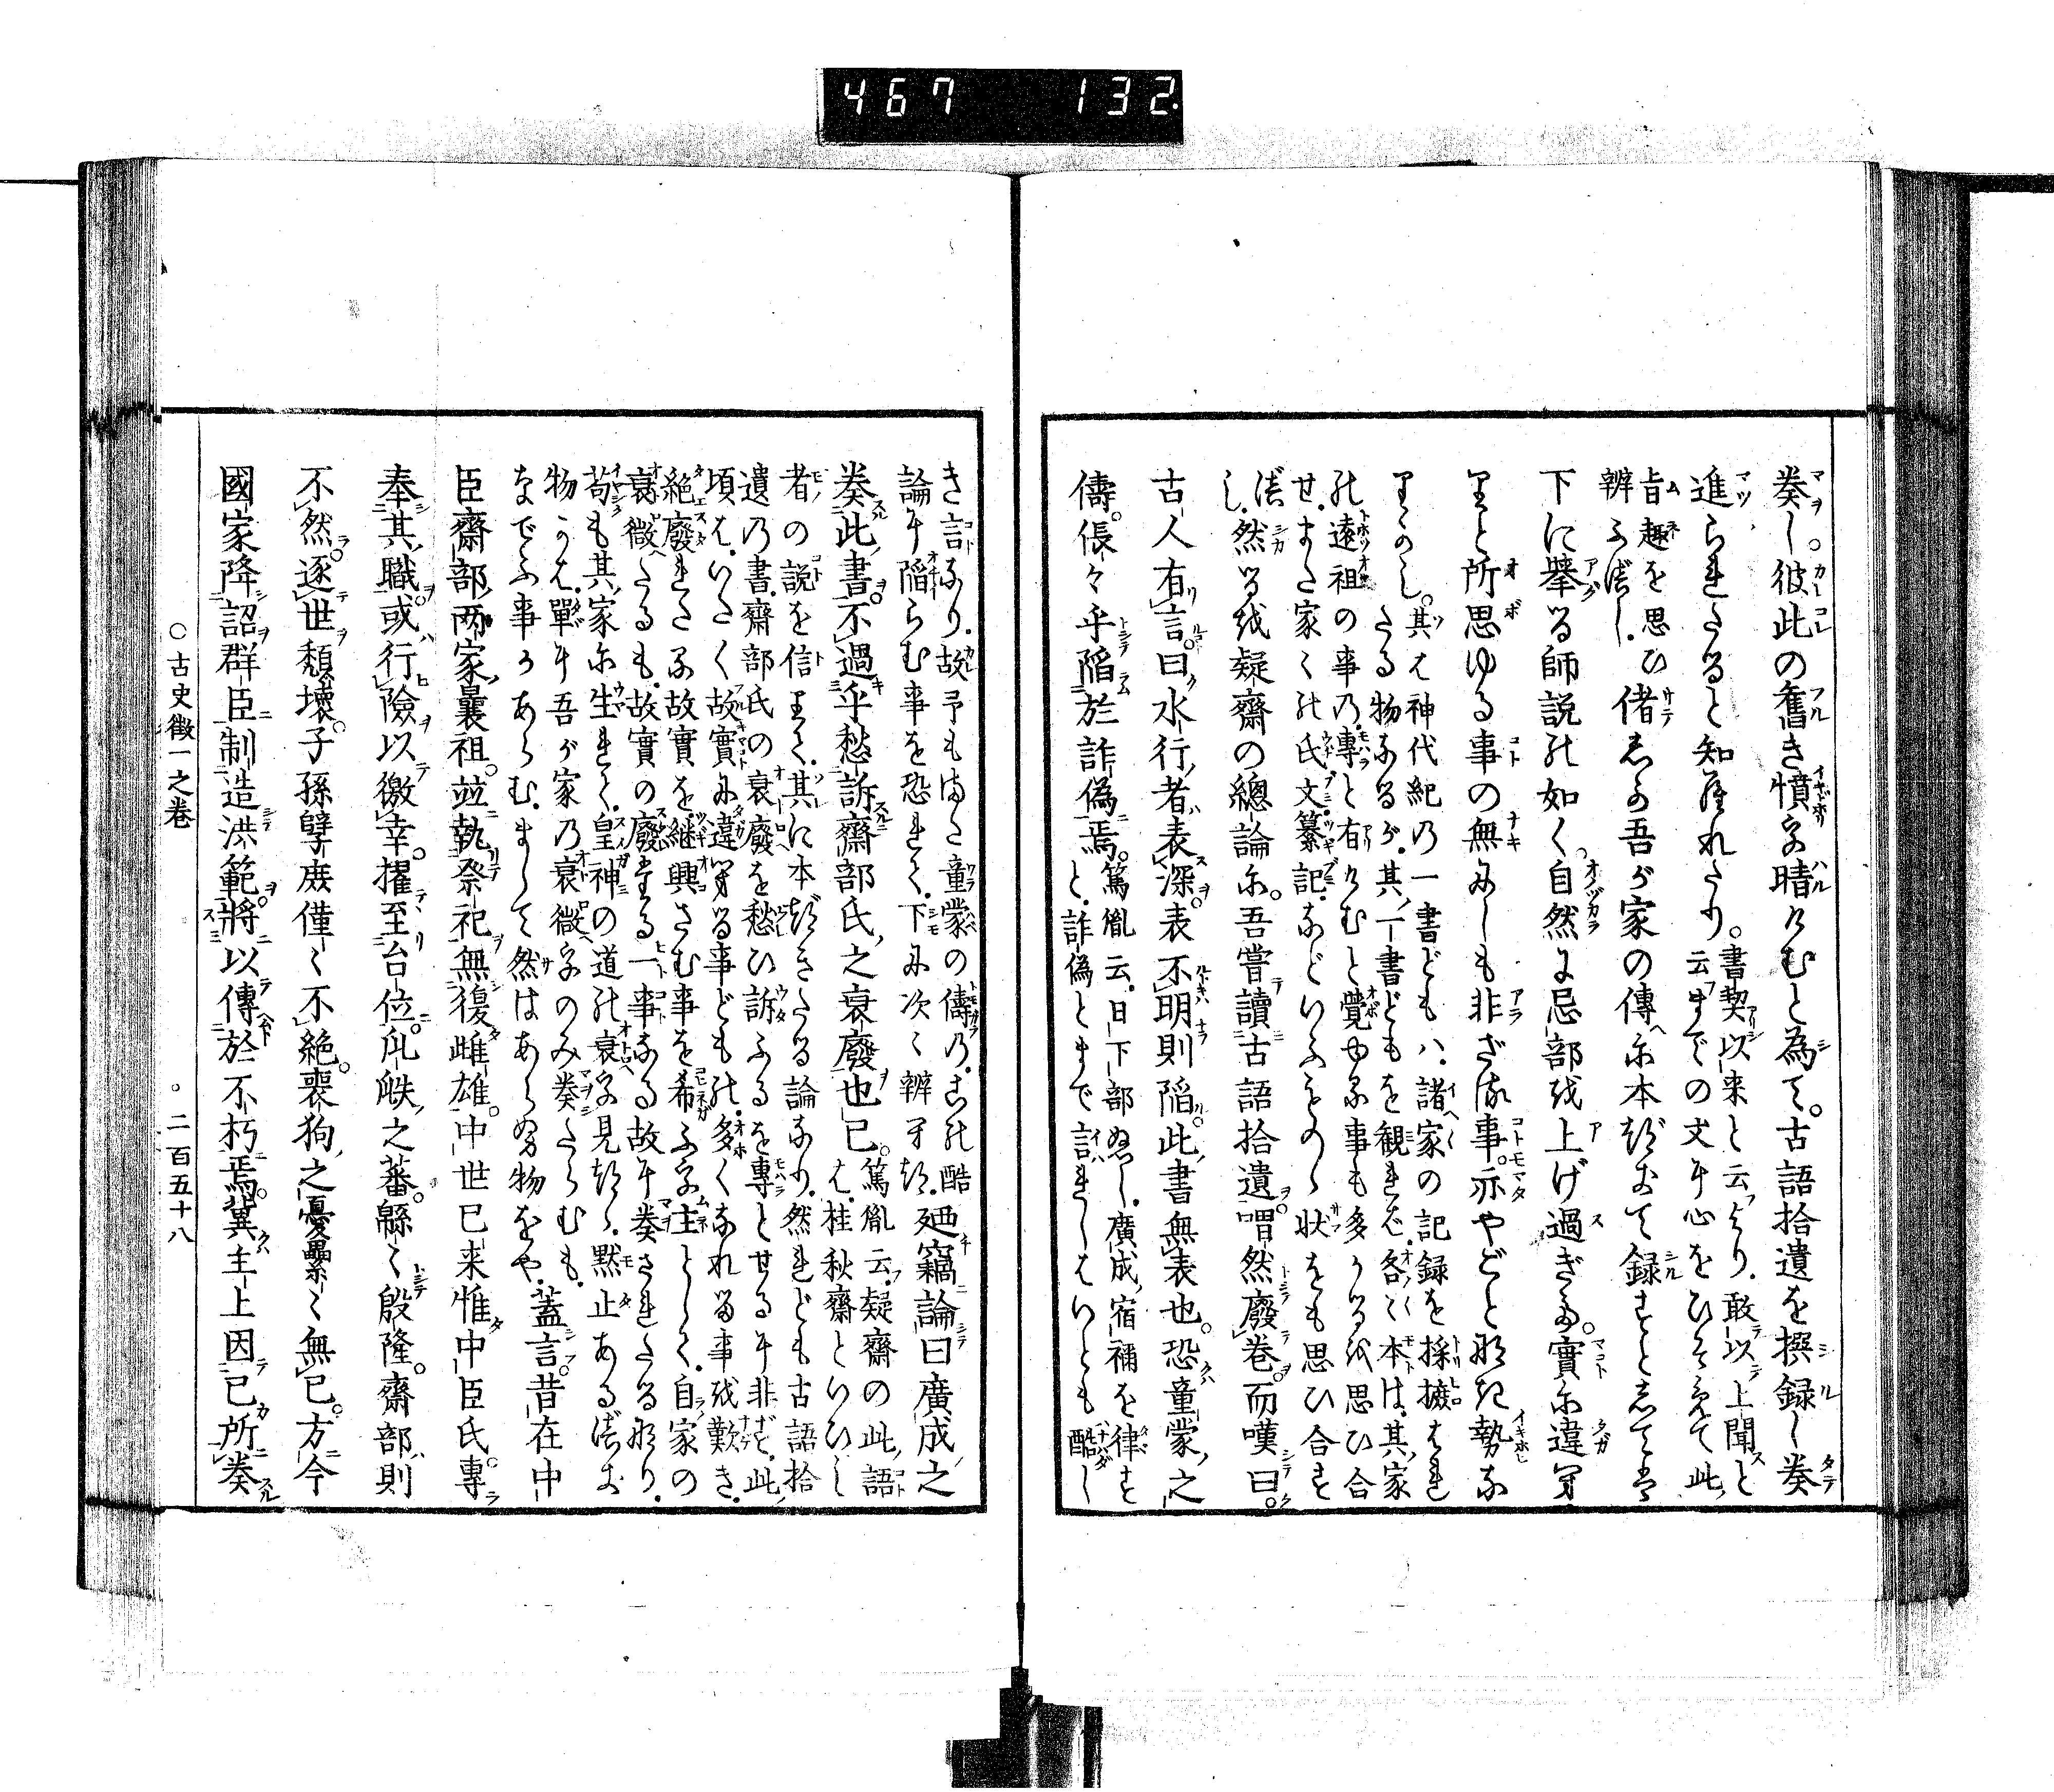 467 132
奏し。彼此の奮き憤り晴けむと為て。古語拾遺を撰録し奏
進られたると知られたり。書契以来と云より。敢以上聞と
云までの文に心をひそめて此
旨趣を思ひ
辨ふべし。偖しか吾が家の傳に本づきて録すとしては
下に擧る師説の如く。自然に忌部を上げ過ぎたる。實に違へ
りと所思ゆる事の無にしも非ざる事。亦やごと無き勢な
りかし。其は神代紀の一書どもハ。諸家の記録を採摭はれ
たる物なるが。其一書どもを観れば。各々本は。其家
の遠祖の事の。專と有けむと覺ゆる事も多かるを思ひ合
せ。また家々の氏文纂記。などいふものゝ状をも思ひ合す
べし。然るを疑齋の總論に。吾嘗讀古語拾遺。喟然廢卷。而嘆曰。
古人有言。曰水行者。表深。表不明則陥。此書無表也。恐童蒙之
儔。倀々乎陥於詐偽焉。篤胤云。日下部ぬし。廣成宿禰を律す
と。詐偽とまで言れしはいとも酷し
き言なり。故予もまた童蒙の儔の。この酷
論に陥らむ事を恐れて。下に次々辨ふ。廼竊論曰廣成之
奏此書。不過乎愁訴齋部氏之衰廢也已。篤胤云。疑齋の此語
は。桂秋齋といひし
者の説を信りて。其に本づきたる論なり。然れども古語拾
遺の書。齋部氏の衰廢を愁ひ訴ふるを專とせるに非ず。此
頃は。いたく故實に違へる事どもの。多くなれる事を歎き。
絶廢れたる故實を継興さむ事を希ふ主として。自家の
衰微たるも。故實の廢たる一事なる故に奏されたるなり。
苟も其家に生れて。皇神の道の衰へ見つゝ。默止あるべき
物かは。單に吾が家の衰微へのみ奏したらむも。
なでふ事かあらむ。まして然はあらぬ物をや。蓋言。昔在中
臣齋部兩家曩祖。竝執祭祀無復雌雄。中世已来惟中臣氏。專
奉其職。或行險以徼幸。擢至台位。瓜瓞之蕃。緜々殷隆。齋部則
不然。逐世頽壊。子孫孽庶僅々不絶。喪狗之憂纍々無已。方今
國家降詔群臣制造洪範。將以傳於不朽焉。冀主上因已所奏
○古史徴一之卷
○二百五十八